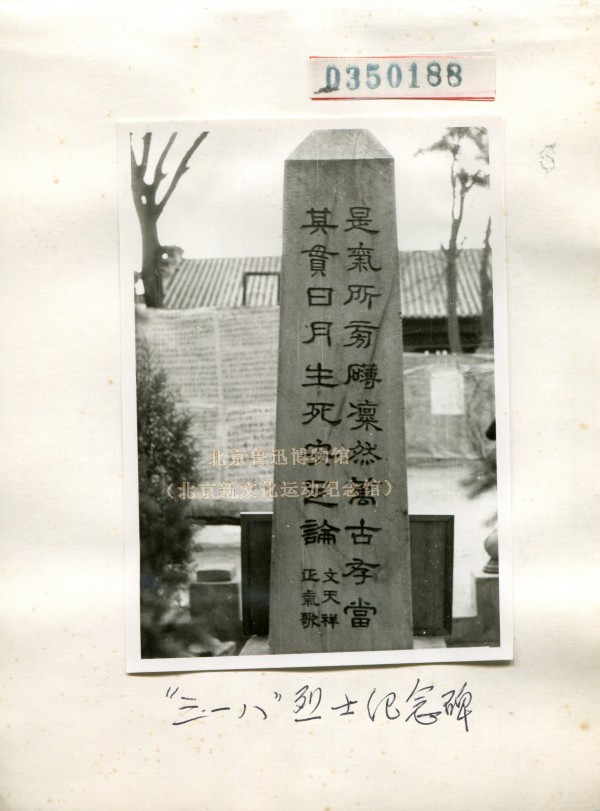 D350188
是氣所旁礴凜然萬古存當
其貫日月生死安足論
文天祥
正氣歌
北京鲁迅博物馆
（北京新文化运动纪念馆）
“三·一八”烈士纪念碑